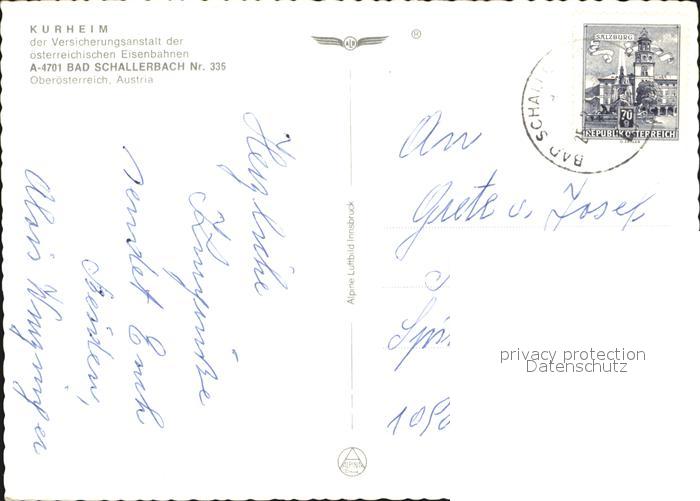 KURHEIM
der Versicherungsanstalt der
österreichischen Eisenbahnen
A-4701 BAD SCHALLERBACH Nr. 336
Oberösterreich, Austria
®
SALZBURG
70 g
REPUBLIK ÖSTERREICH
BAD SCHALL
Herzliche
Kurgrüße
sendet Euch
beiden,
Alois
Alpine Luftbild Innsbruck
ALPINE
An
Grete u. Josef
privacy protection
Datenschutz